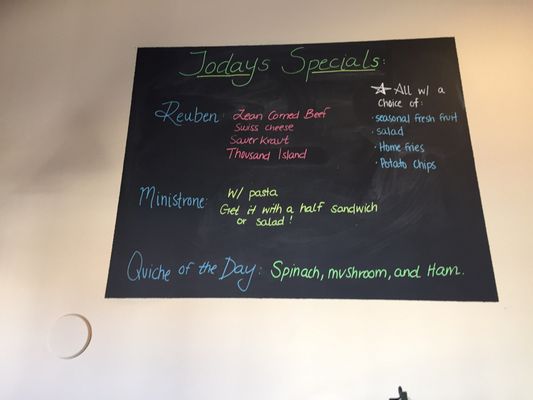 Todays Specials:
Reuben: Lean Corned Beef
Swiss cheese
Sauerkraut
Thousand Island
☆ All w/ a
choice of:
• seasonal fresh fruit
• salad
• Home fries
• Potato Chips
Ministrone: w/ pasta
Get it with a half sandwich
or salad!
Quiche of the Day: Spinach, mushroom, and Ham.